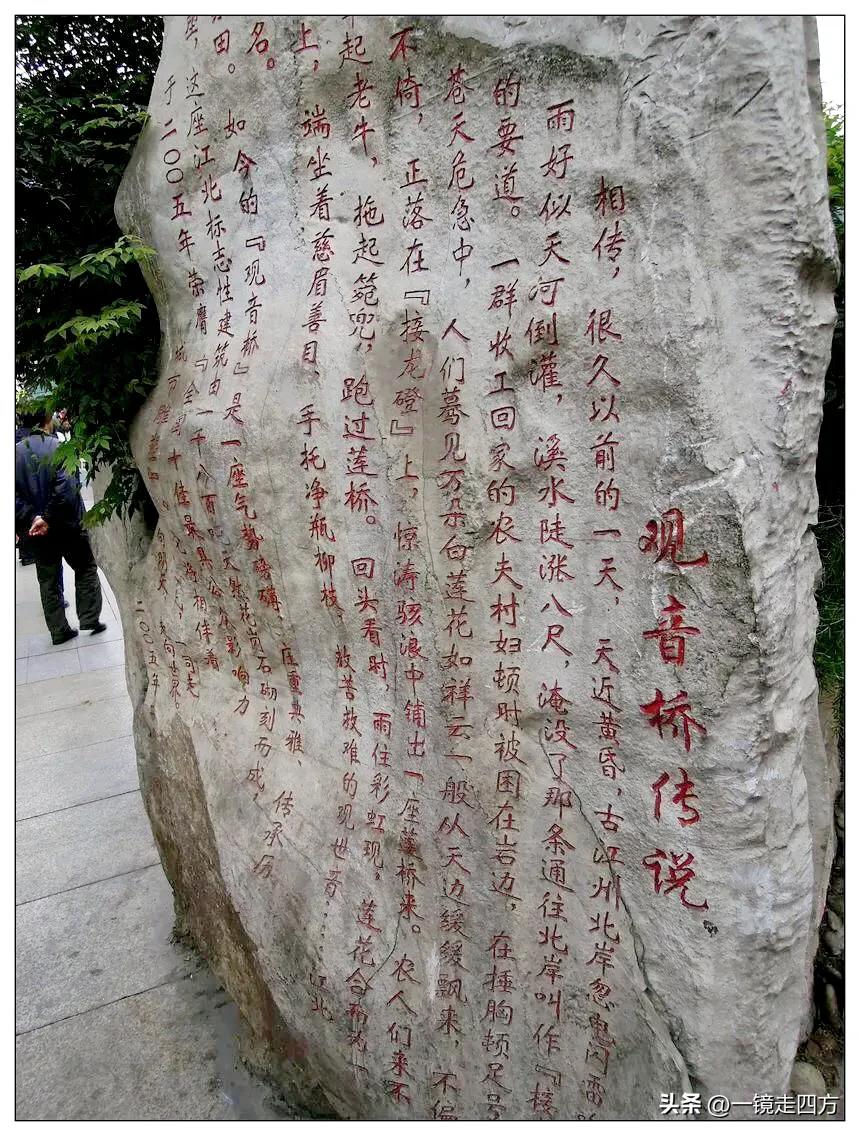 观音桥传说
相传，很久以前的一天，天近黄昏，古江州北岸忽电闪雷
雨好似天河倒灌，溪水陡涨八尺，淹没了那条通往北岸叫作『接
的要道。一群收工回家的农夫村妇顿时被困在岩边，在捶胸顿足号
苍天危急中，人们蓦见万朵白莲花如祥云一般从天边缓缓飘来，不偏
不倚，正落在『接龙磴』上，惊涛骇浪中铺出一座莲桥来。农人们来不
起老牛，拖起篼兜，跑过莲桥。回头看时，雨住彩虹现。莲花合而为一
上，端坐着慈眉善目、手托净瓶柳枝救苦救难的观世音……江北
名。
田。如今的『观音桥』是一座气势磅礴、庄重典雅、传承历
这座江北标志性建筑由一千八百吨天然花岗石砌刻而成，
于二〇〇五年荣膺『全国十佳最具公众影响力
城市雕塑』。
二〇〇五年
头条 @一镜走四方